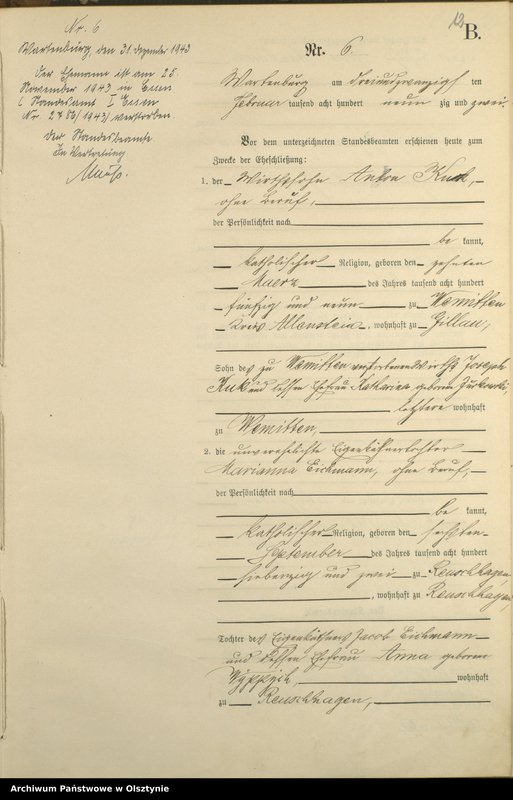 Nr. 6
Wartenburg, den 31 dezember 1943
Der Ehemann ist am 25.
November 1943 in Essen
( Standesamt I Essen
Nr. 2786/1943) verstorben
Der Standesbeamte
In Vertretung
12
B.
Nr. 6.
Wartenburg am dreiundzwanzigs ten
Februar tausend acht hundert neun zig und zwei.
Vor dem unterzeichneten Standesbeamten erschienen heute zum
Zwecke der Eheschließung:
1. der Wirthssohn Anton Kuk,
ohne Beruf,
der Persönlichkeit nach
be kannt,
katholischer Religion, geboren den zehnten
Maerz des Jahres tausend acht hundert
fünfzig und neun zu Wemitten
Kreis Allenstein, wohnhaft zu Gillau,
Sohn des zu Wemitten verstorbenen Wirths Joseph
Kuk und dessen Ehefrau Katharina geboren
letztere wohnhaft
zu Wemitten,
2. die unverehelichte Eigenkäthnertochter
Marianna Eichmann, ohne Beruf,
der Persönlichkeit nach
be kannt,
katholischer Religion, geboren den sechsten
September des Jahres tausend acht hundert
siebenzig und zwei zu Reuschhagen
, wohnhaft zu Reuschhagen
Tochter des Eigenkäthners Jacob Eichmann
und dessen Ehefrau Anna geboren
wohnhaft
zu Reuschhagen,
Archiwum Państwowe w Olsztynie